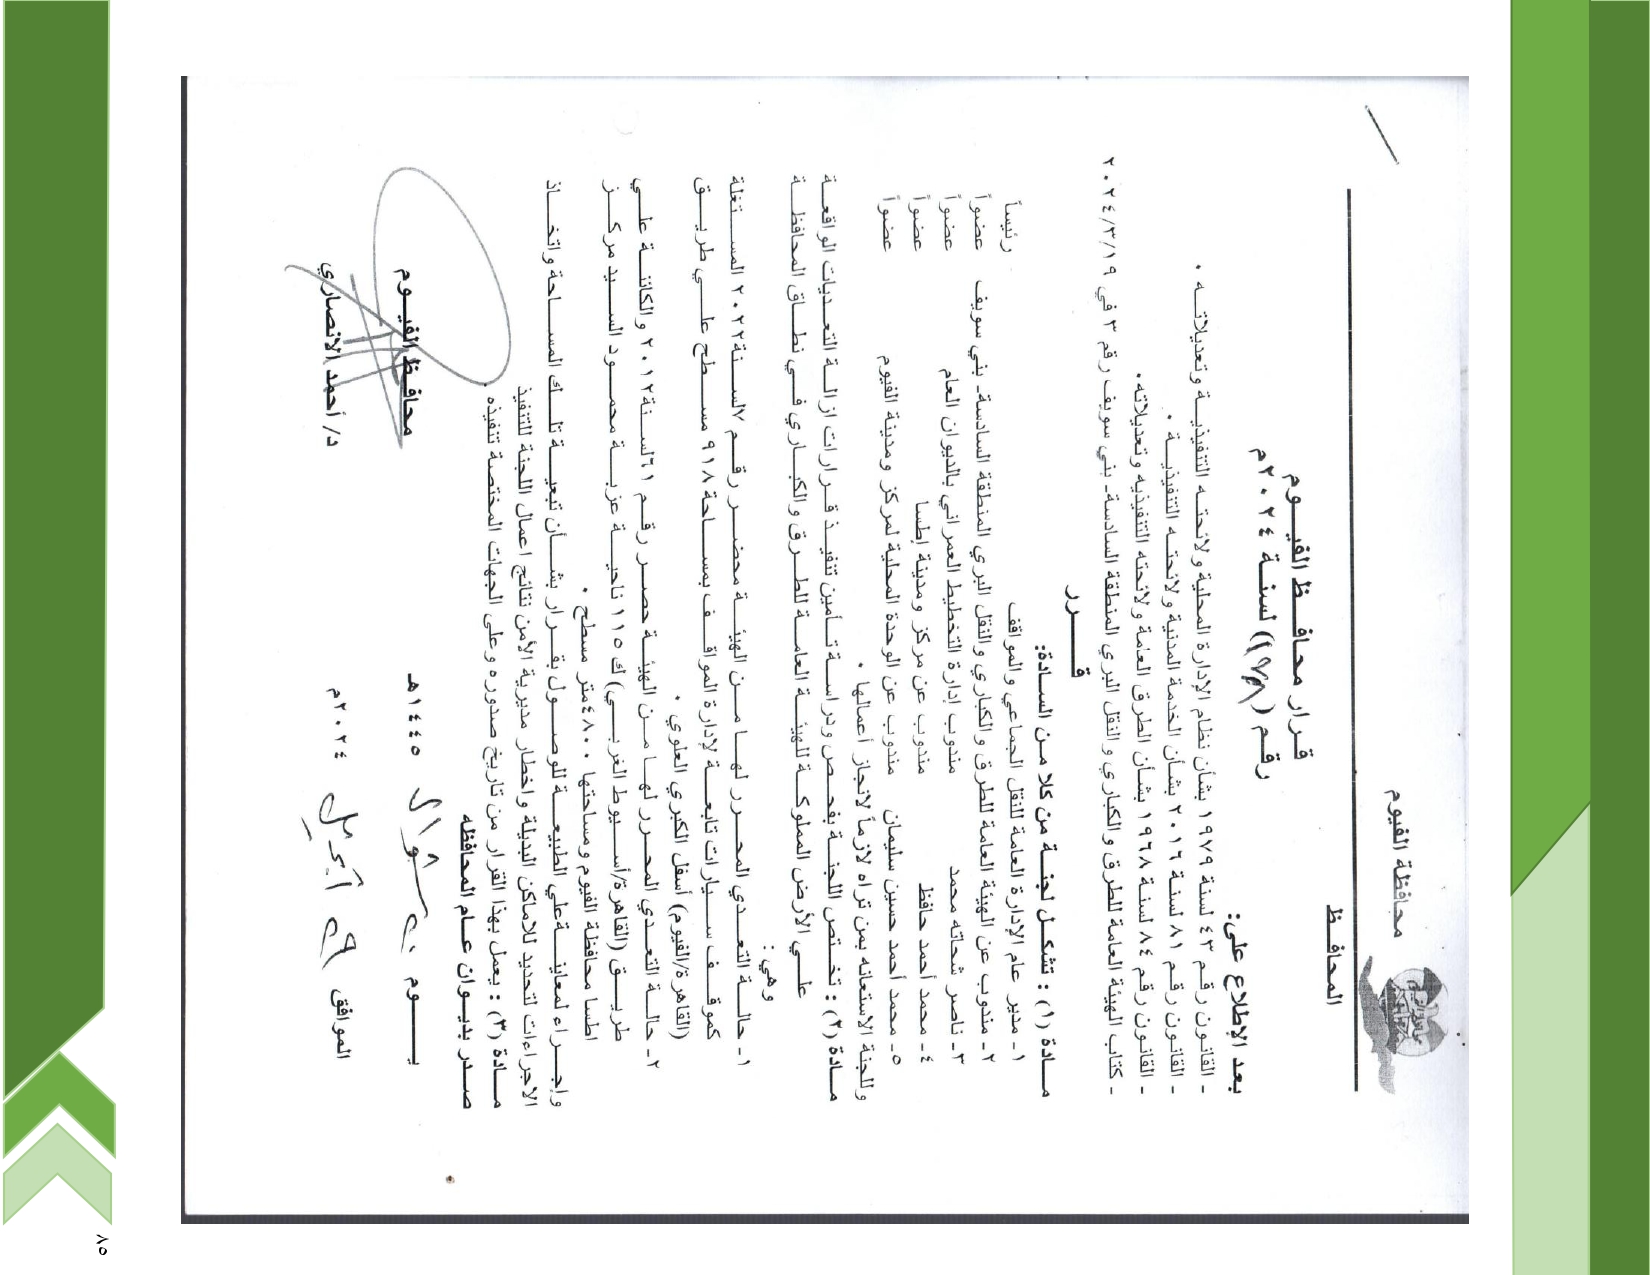 محافظة الفيوم
المحافظ
قرار محافظ الفيوم
رقم ( ) لسنة ٢٠٢٤م
بعد الإطلاع على:
- القانون رقم ٤٣ لسنة ١٩٧٩ بشأن نظام الإدارة المحلية ولائحته التنفيذية وتعديلاته .
- القانون رقم ٨١ لسنة ٢٠١٦ بشأن الخدمة المدنية ولائحته التنفيذية .
- القانون رقم ٨٤ لسنة ١٩٦٨ بشأن الطرق العامة ولائحته التنفيذيه وتعديلاته.
- كتاب الهيئة العامة للطرق والكباري والنقل البري المنطقة السادسة- بني سويف رقم ٣ في ٢٠٢٤/٣/١٩
قــــرر
مــادة (١) : تشكل لجنة من كلا من السادة:
١- مدير عام الإدارة العامة للنقل الجماعي والمواقف رئيساً
٢- مندوب عن الهيئة العامة للطرق والكباري والنقل البري المنطقة السادسة- بني سويف عضواً
٣- ناصر شحاته محمد مندوب إدارة التخطيط العمراني بالديوان العام عضواً
٤- محمد أحمد حافظ مندوب عن مركز ومدينة إطسا عضواً
٥- محمد أحمد حسين سليمان مندوب عن الوحدة المحلية لمركز ومدينة الفيوم عضواً
وللجنة الاستعانه بمن تراه لازماً لانجاز أعمالها .
مــادة (٢) : تختص اللجنة بفحص ودراسة تأمين تنفيذ قرارات ازالة التعديات الواقعة
علي الأرض المملوكة للهيئة العامة للطرق والكباري في نطاق المحافظة
وهي:
١- حالة التعدي المحرر لها من الهيئة محضر رقم ٧ لسنة ٢٠٢٢ المستغلة
كموقف سيارات تابعة لإدارة المواقف بمساحة ٩١٨ مسطح علي طريق
(القاهرة/الفيوم) أسفل الكبري العلوي .
٢- حالة التعدي المحرر لها من الهيئة حصر رقم ٦١ لسنة ٢٠١٢ والكائنة علي
طريق (القاهرة/أسيوط الغربي) ك ١١٥ ناحية عزبة محمود السيد مركز
اطسا محافظة الفيوم ومساحتها ٤٨٠٠ متر مسطح .
وإجراء لمعاينة علي الطبيعة للوصول بقرار بشأن تبعية تلك المساحة واتخاذ
الاجراءات لتحديد للاماكن البديلة واخطار مديرية الأمن نتائج اعمال اللجنة للتنفيذ
مــادة (٣) : يعمل بهذا القرار من تاريخ صدوره وعلى الجهات المختصة تنفيذه .
صدر بديوان عام المحافظه
يــوم شوال ١٤٤٥هـ
الموافق أبريل ٢٠٢٤م
محافظ الفيوم
د/ أحمد الانصاري
٥٧